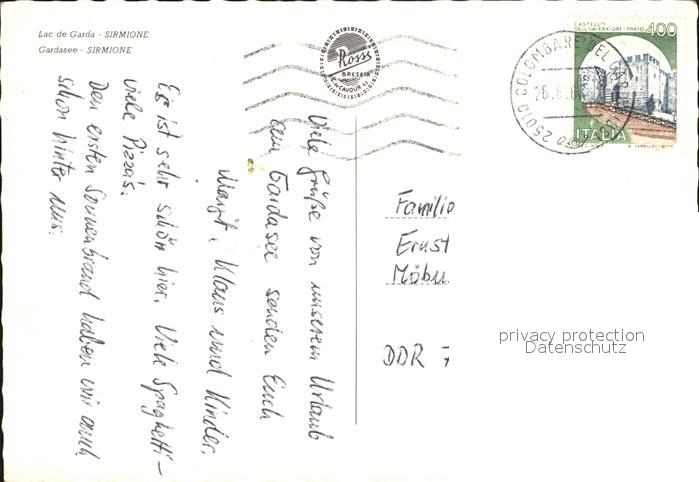 Lac de Garda - SIRMIONE
Gardasee - SIRMIONE
Viele Grüße von unserem Urlaub
am Gardasee senden Euch
Margit, Klaus und Kinder.
Es ist sehr schön hier. Viele Spaghetti-
viele Pizza's.
Den ersten Sonnenbrand haben wir auch
schon hinter uns.
Rossi
BRESCIA
25010 COLOMBARE DEL GARDA
CASTELLO
DELL'IMPERATORE - PRATO
400
ITALIA
Familie
Ernst
Möbu
DDR 7
privacy protection
Datenschutz